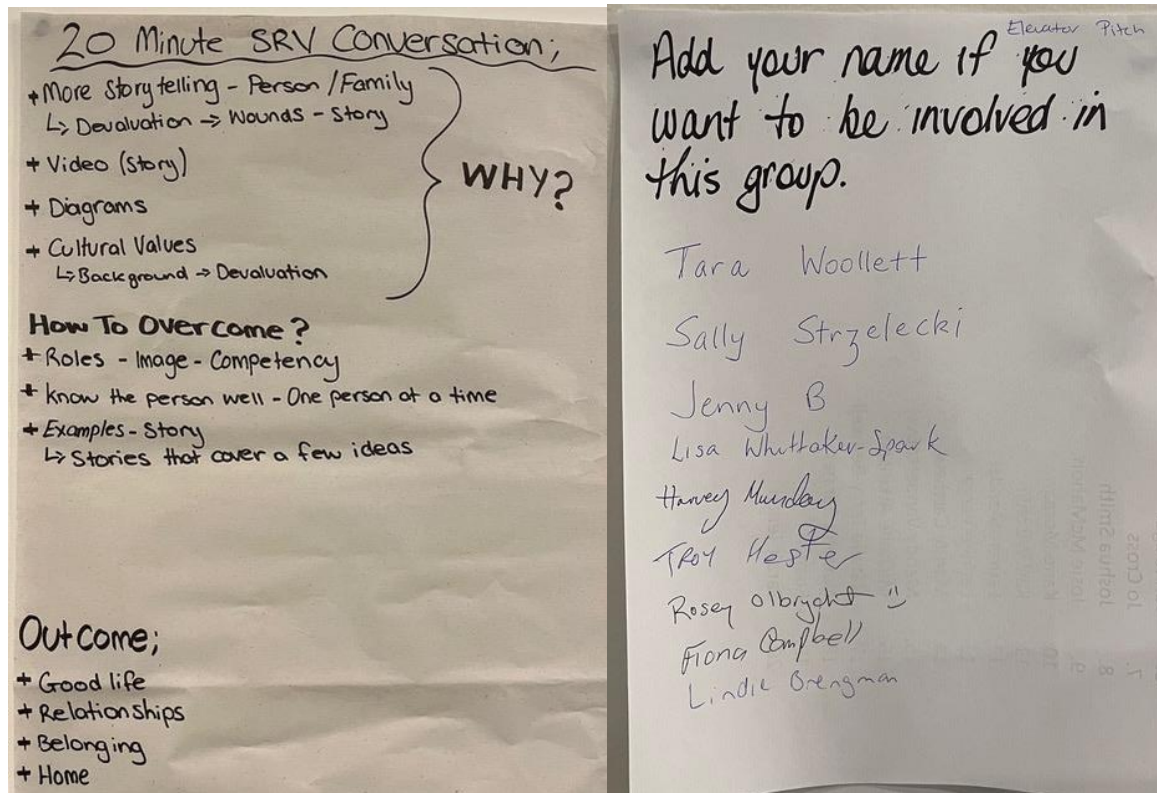 20 Minute SRV Conversation;
+ More Storytelling - Person / Family
↳ Devaluation → Wounds - Story
+ Video (Story)
+ Diagrams
+ Cultural Values
↳ Background → Devaluation
WHY?
How To Overcome?
+ Roles - Image - Competency
+ Know the person well - One person at a time
+ Examples - Story
↳ Stories that cover a few ideas
Outcome;
+ Good life
+ Relationships
+ Belonging
+ Home
Elevator Pitch
Add your name if you
want to be involved in
this group.
Tara Woollett
Sally Strzelecki
Jenny B
Lisa Whittaker-Spark
Harvey Munday
Troy Hester
Rosey Olbrycht
Fiona Campbell
Lindie Brengman
Jo Cross
Joshua Smith